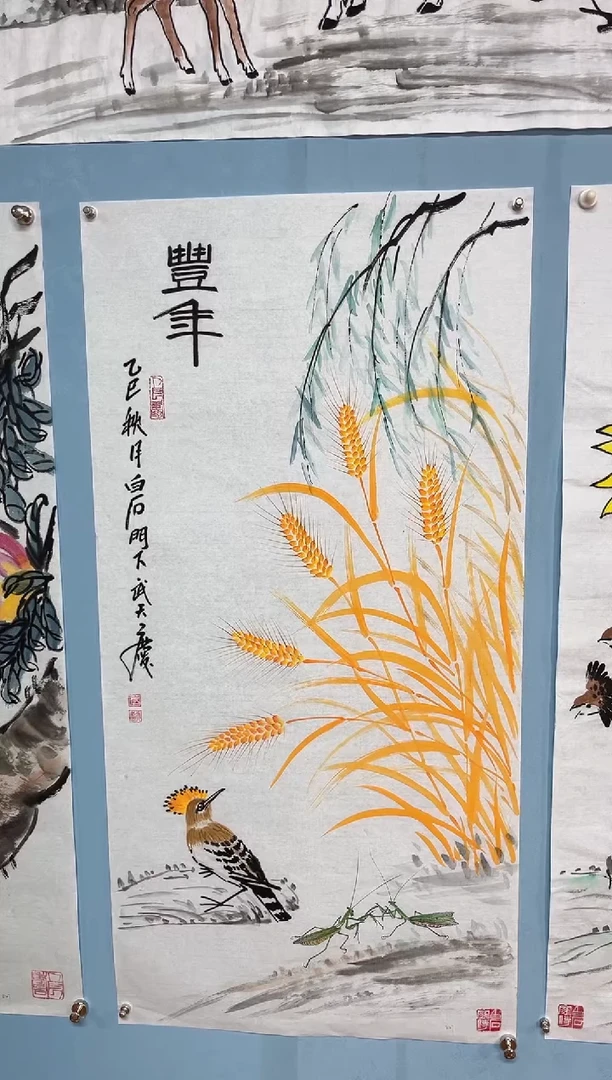 豐年
乙巳秋月白石門下武天慶